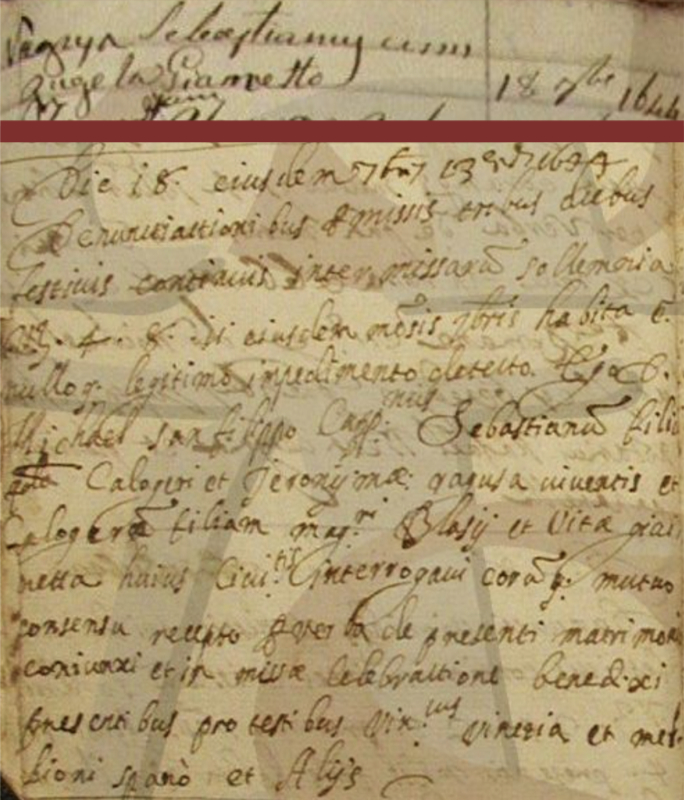 Ragusa Sebastianus cum
Angela Giannetto
18 7bre 1644
Die 18. eiusdem 7bris 13 1644
Denunciationibus premissis tribus diebus
festivis continuis inter missarũ sollemnia
4. 8. 11 eiusdem mẽsis 7bris habita ẽ.
nulloq. legitimo impedimento detecto. Ego D.
Michael sanfilippo Capp.nus Sebastianũ filiũ
Calogeri et Jeronymæ ragusa viventis et
Calogerã filiam mag.ri Blasij et Vitæ gian
netta huius Civi.tis interrogavi corãq. mutuo
consensu recepto p verba de presenti matrimon
coniunxi et in missæ celebratione benedixi
presentibus pro testibus Vin.ius Vinezia et mel
hioni spanò et Alijs